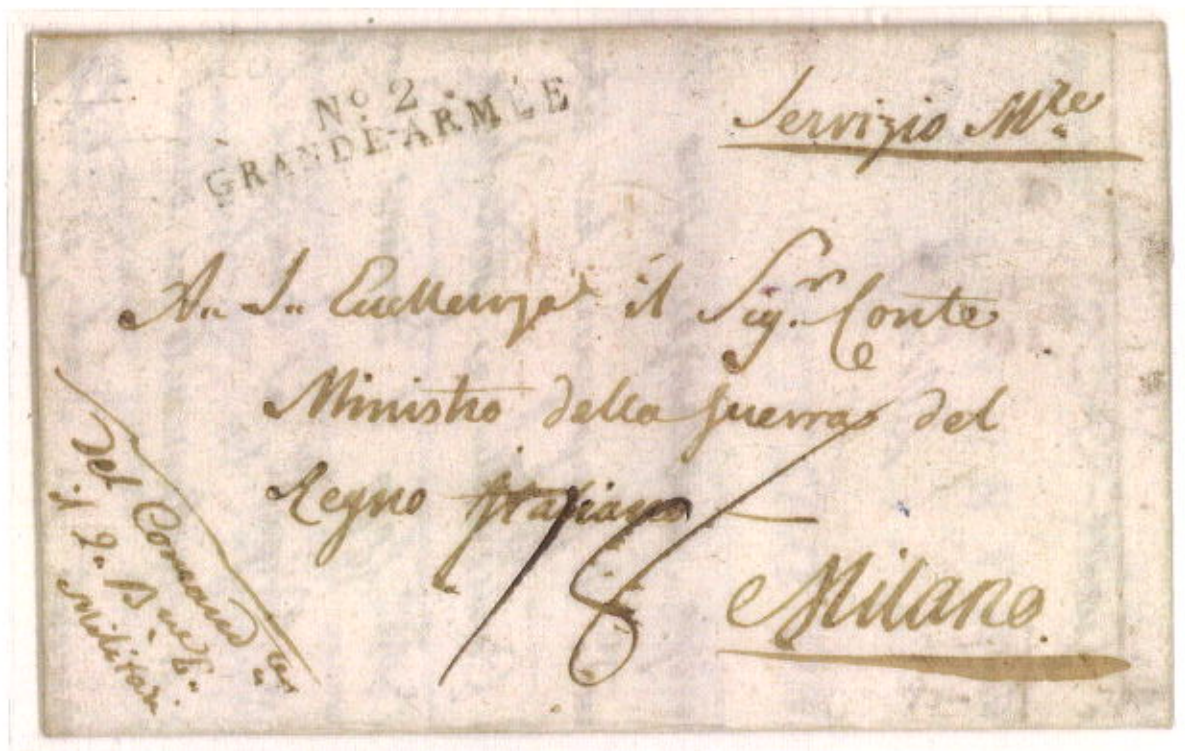 No. 2
GRANDE-ARMEE
Servizio Mre
A. S. Eccellenza il Sigr. Conte
Ministro della Guerra del
Regno Italiano
18
Milano.
Del Comand
il 2
Militari